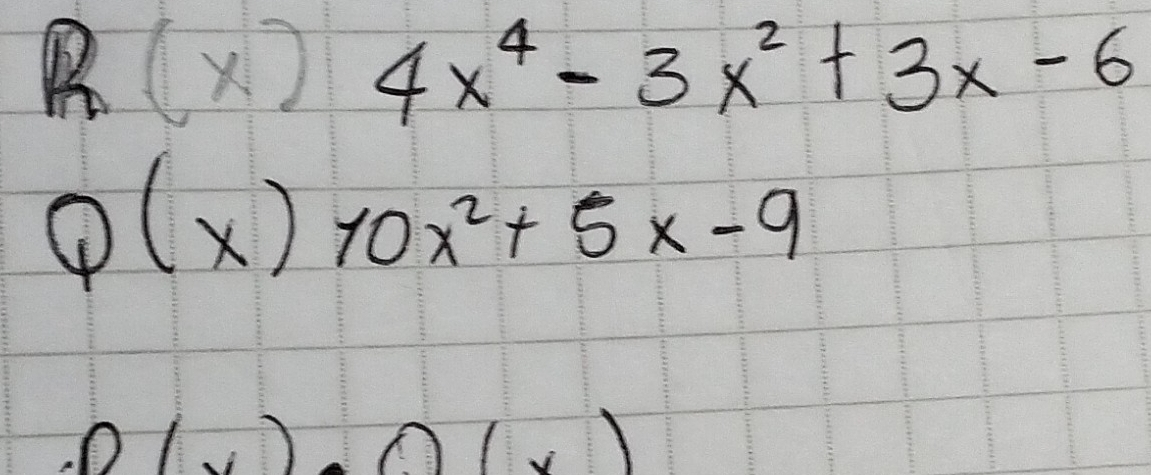 R(x) 4x⁴ - 3x² + 3x - 6
Q(x) 10x² + 5x - 9
P(x) · Q(x)